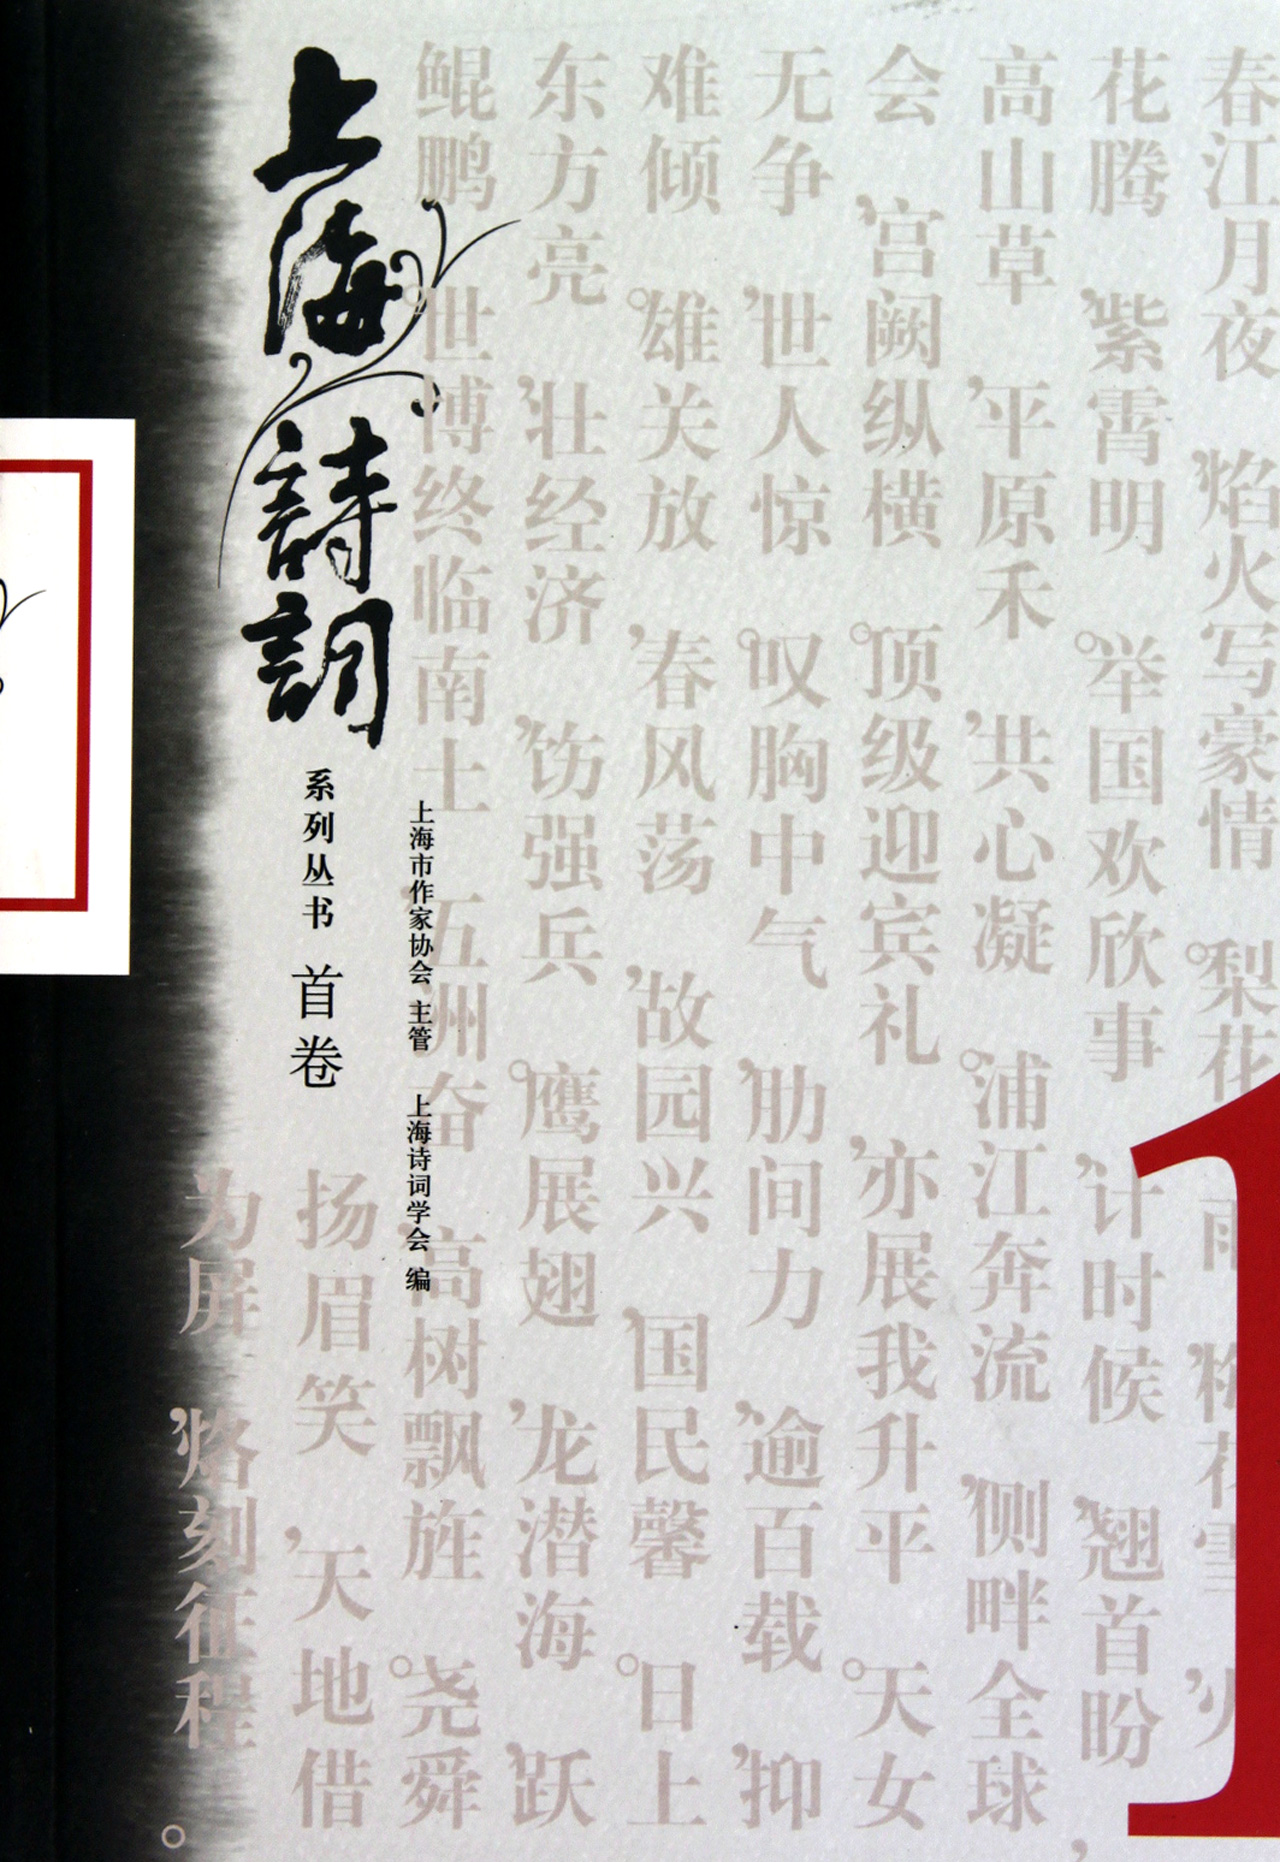 上海詩詞
系列丛书 首卷
上海市作家协会 主管 上海诗词学会 编
春江月夜,焰火写豪情。梨花雨,梅花雪,火
花腾,紫霄明。举国欢欣事,计时候,翘首盼,
高山草,平原禾,共心凝。浦江奔流,侧畔全球
会,宫阙纵横。顶级迎宾礼,亦展我升平。天女
无争,世人惊。叹胸中气,肋间力,逾百载,抑
难倾。雄关放,春风荡,故园兴,国民馨。日上
东方亮,壮经济,饬强兵。鹰展翅,龙潜海,跃
鲲鹏。世博终临南土,五洲奋,高树飘旌。尧舜
扬眉笑,天地借
为屏,烙刻征程。
1